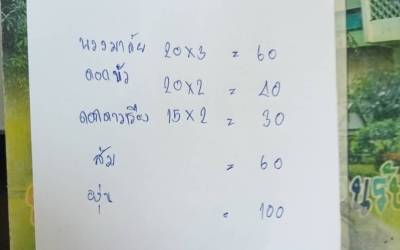 พวงมาลัย 20×3 = 60
ดอกบัว 20×2 = 40
ดอกดาวเรือง 15×2 = 30
ส้ม = 60
องุ่น = 100